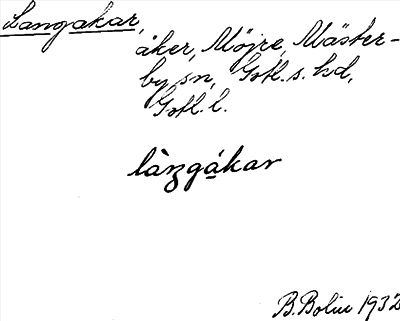 Langakar,
åker, Möjre, Mäster-
by sn, Gotl. s. hd,
Gotl. l.
làŋgákar
B. Bolin 1932